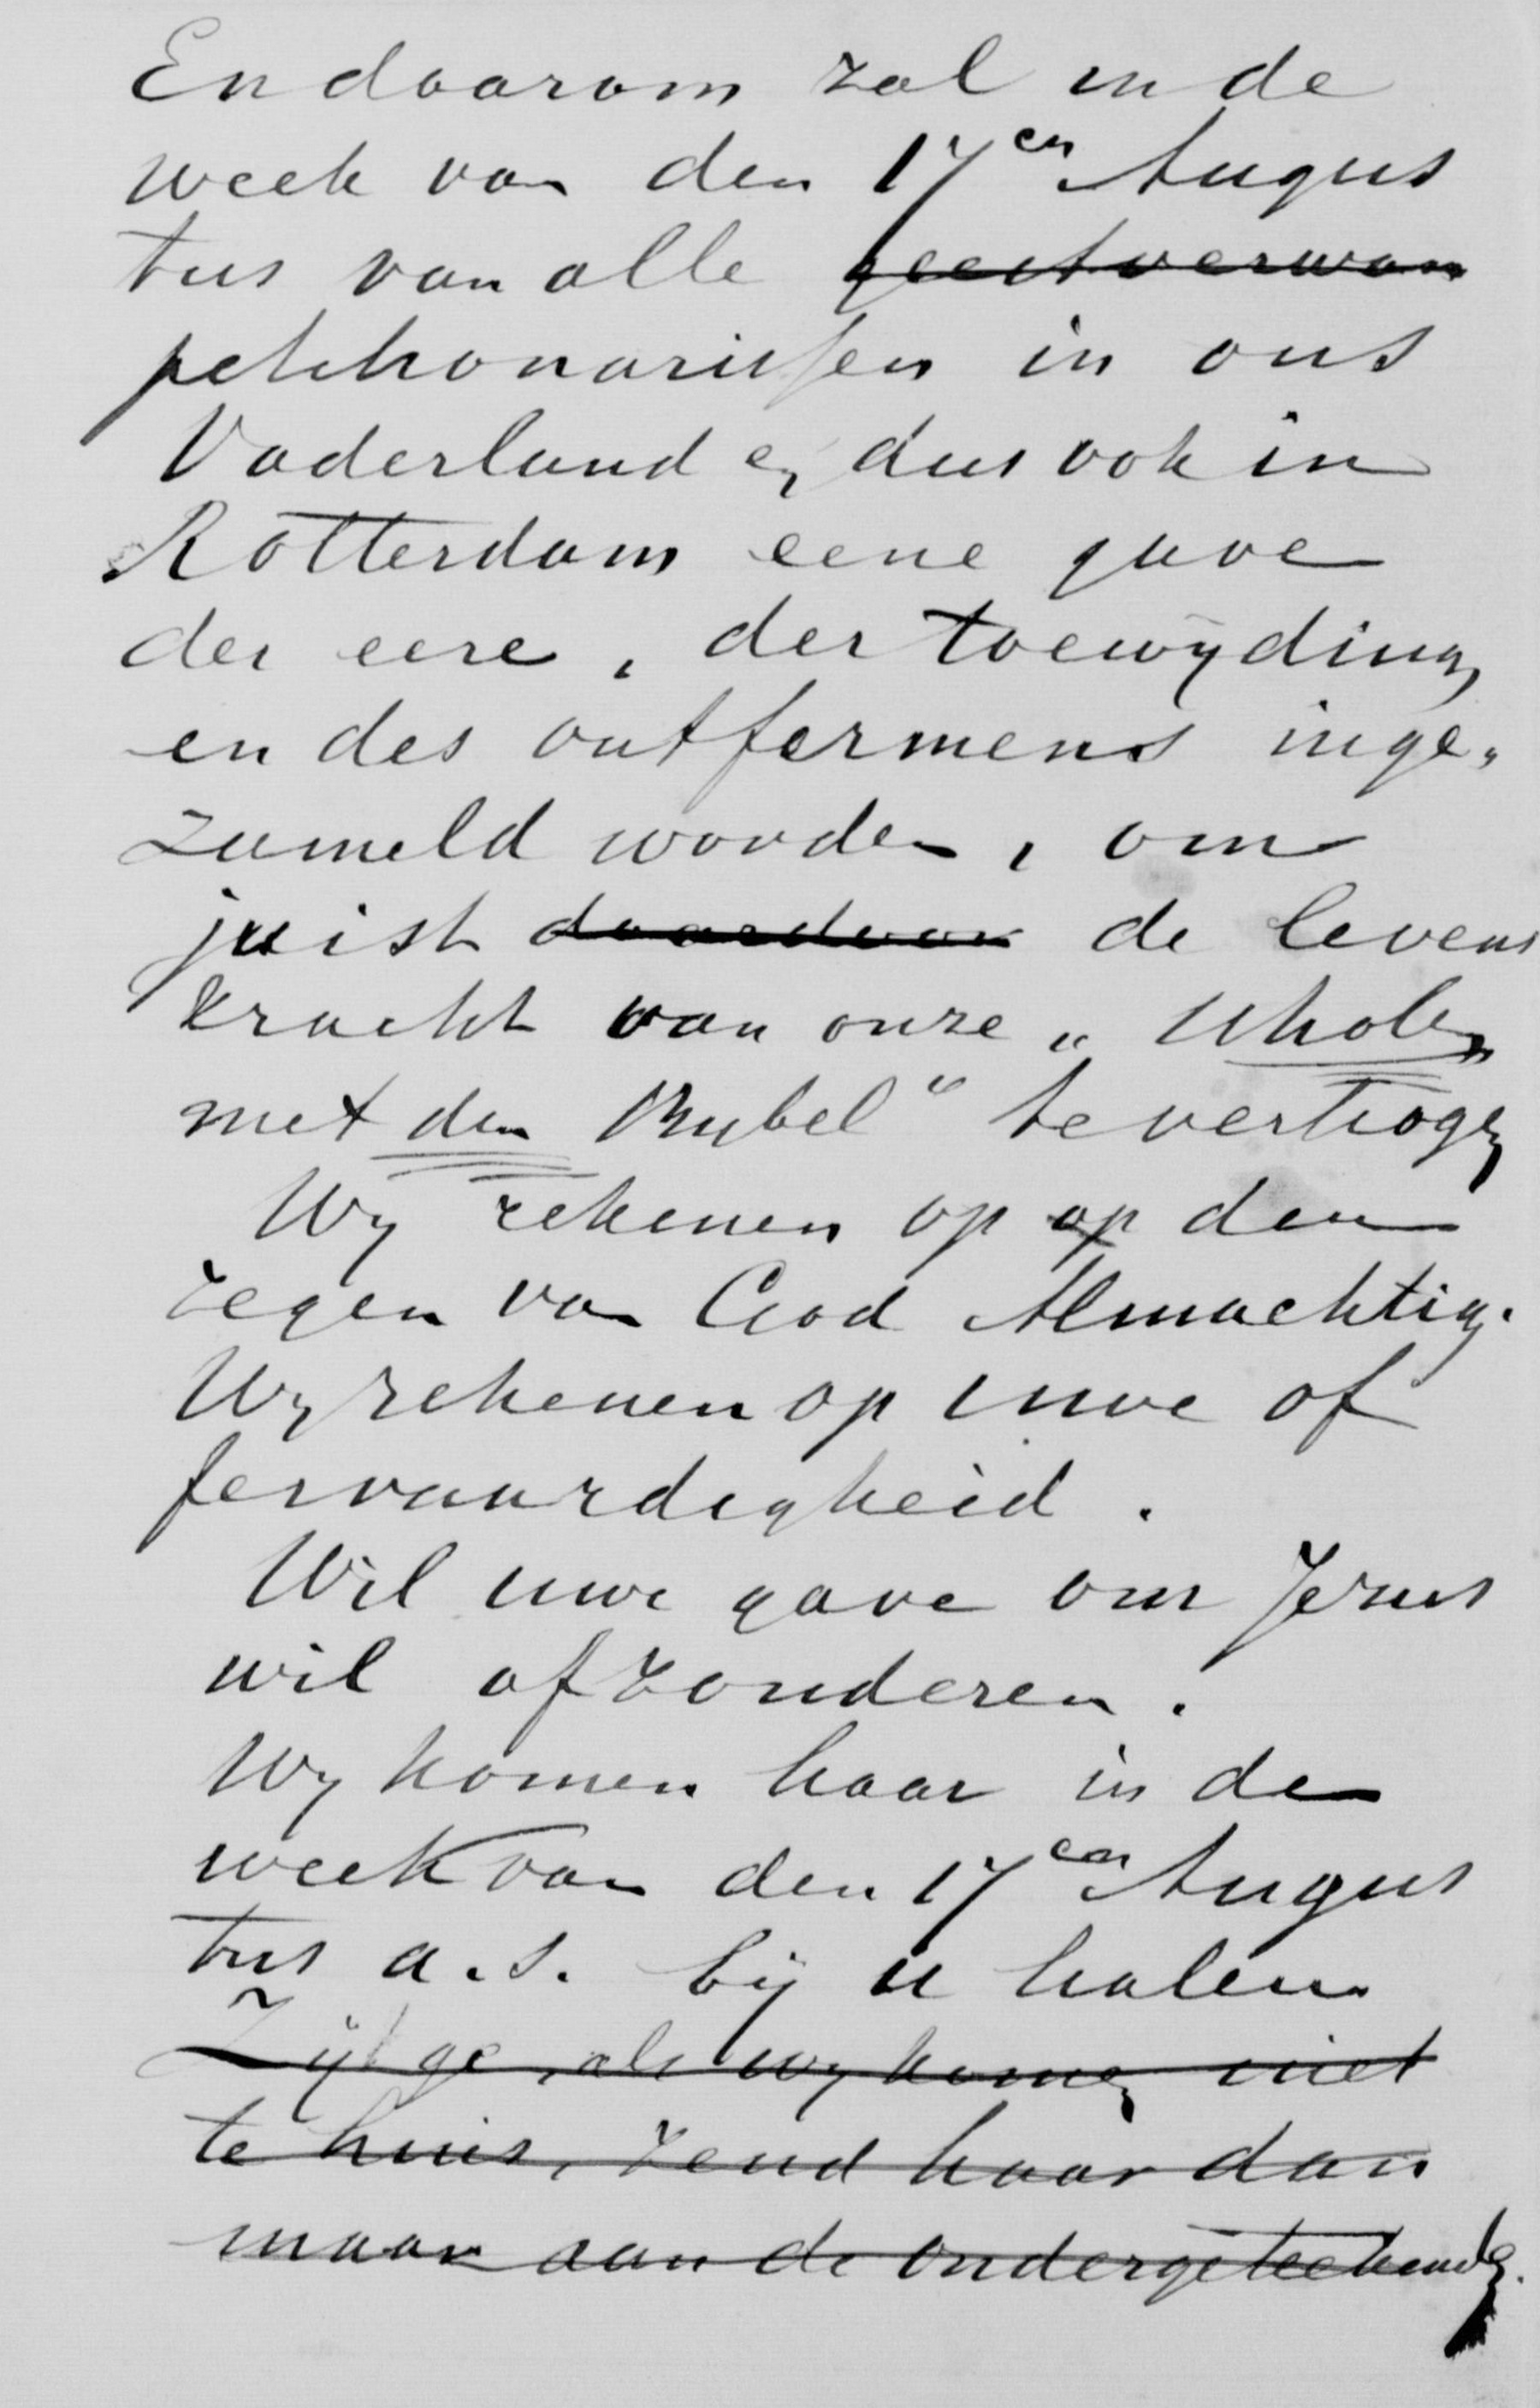 En daarom zal in de
week van den 17en Augus
tus van alle geestverwan
petitionarissen in ons
Vaderland en dus ook in
Rotterdam eene gave
der eere, der toewijding
en des ontfermens inge-
zameld worden, om
juist daardoor de levens
kracht van onze „Scholen
met den Bijbel" te vertoogen
Wij rekenen op op den
zegen van God Almachtig.
Wij rekenen op uwe of
fervaardigheid.
Wil uwe gave om Jezus
wil afzonderen.
Wij komen haar in de
week van den 17en Augus
tus a.s. bij u halen.
Zijt ge, als wij komen niet
te huis, zend haar dan
maar aan de ondergeteekende.